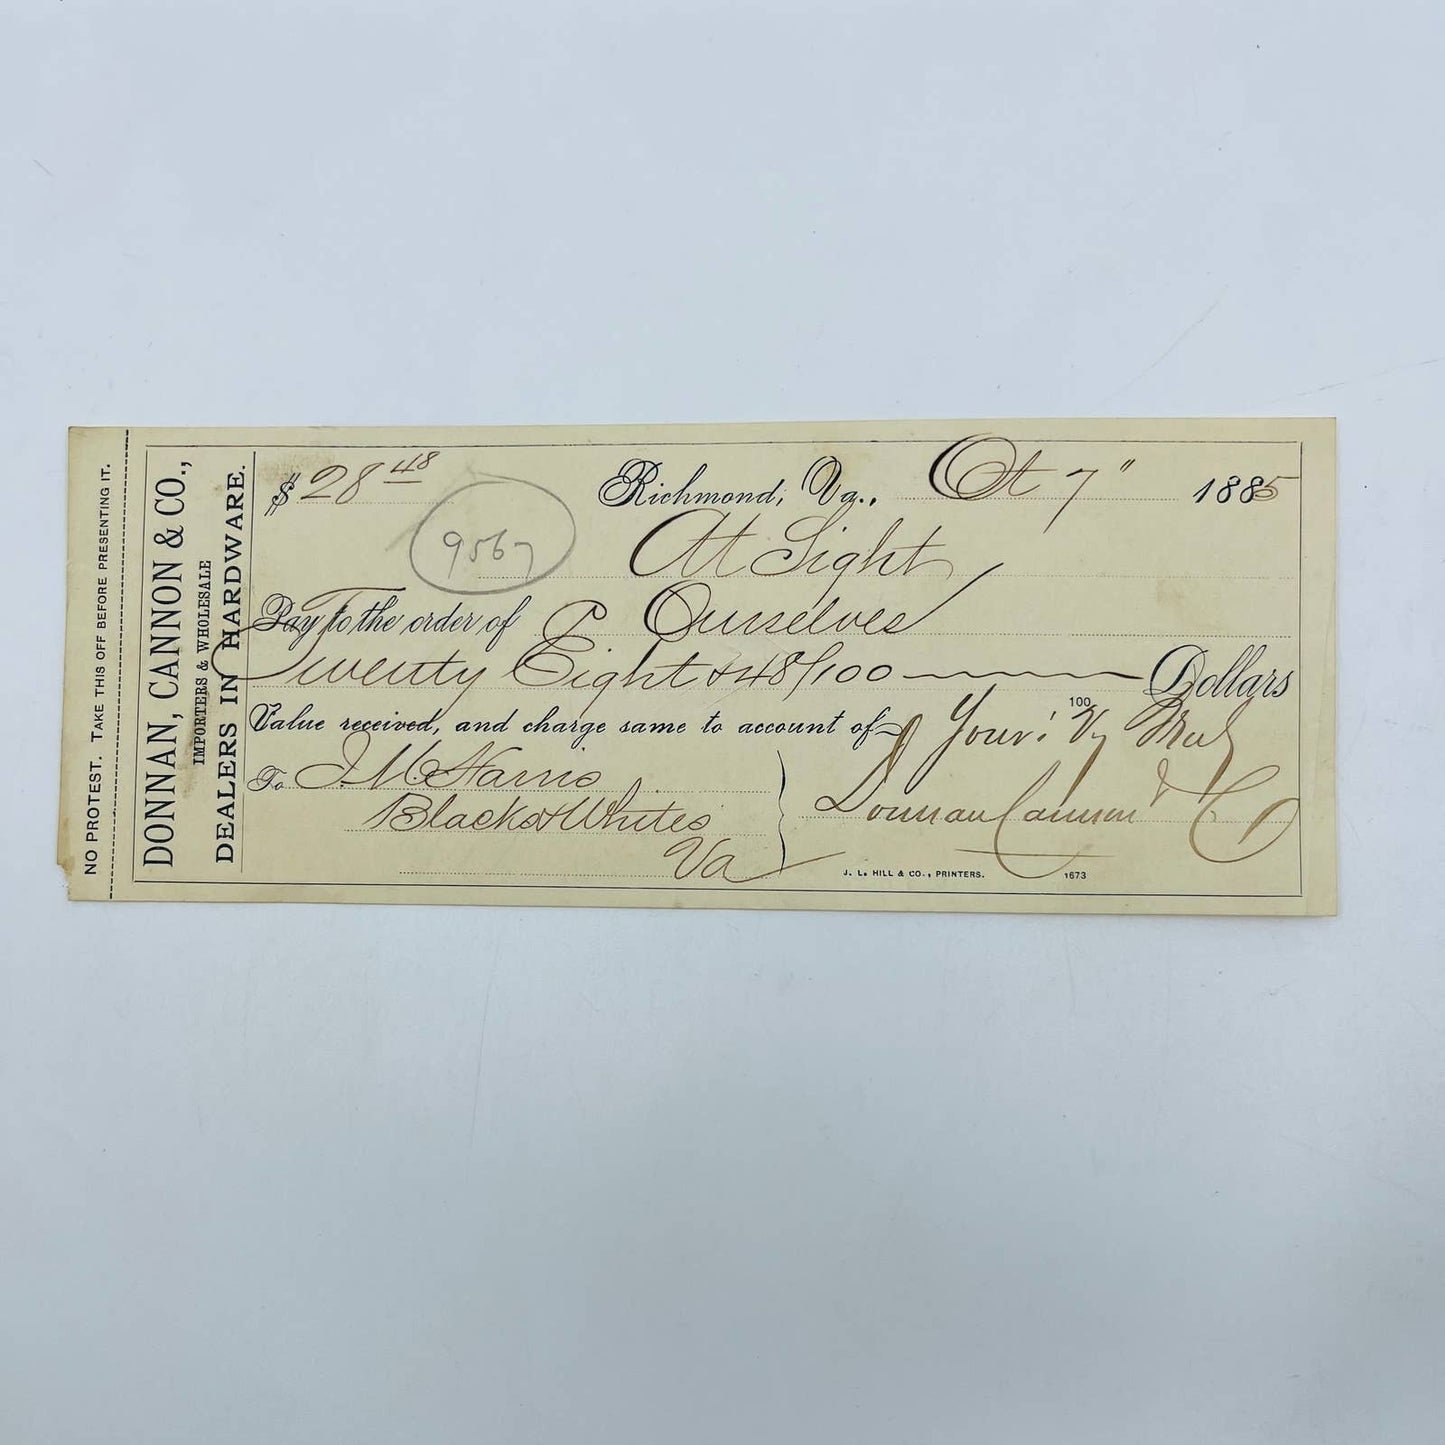 NO PROTEST. TAKE THIS OFF BEFORE PRESENTING IT.
DONNAN, CANNON & CO.,
IMPORTERS & WHOLESALE
DEALERS IN HARDWARE.
$ 28 48 Richmond, Va., Oct 7" 1885
9567
At Sight
Pay To the order of Ourselves
Twenty Eight & 48/100 Dollars
100
Value received, and charge same to account of Your
To J. M. Harris
Blacks & Whites
Va
Donnan Cannon & Co
J. L. HILL & CO., PRINTERS. 1673